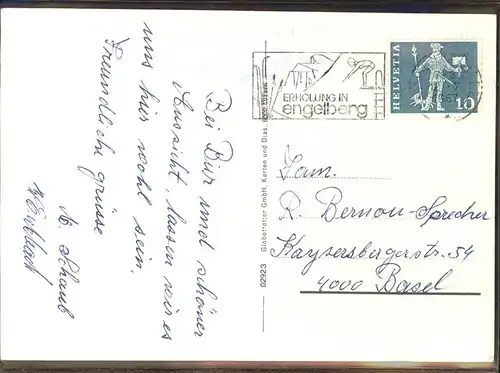 Bei Bier und schöner
Aussicht, lassen wir es
uns hier wohl sein.
Freundliche grüsse
M. Schaub
ERHOLUNG IN
engelberg
HELVETIA
10
02623 Globetrotter GmbH, Karten und Dias, 6000 Luzern
Fam.
R. Bernou-Sprecher
Kaysersbergerstr. 54
4000 Basel